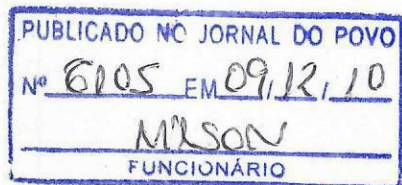 PUBLICADO NO JORNAL DO POVO
Nº 6105 EM 09,12,10
FUNCIONÁRIO